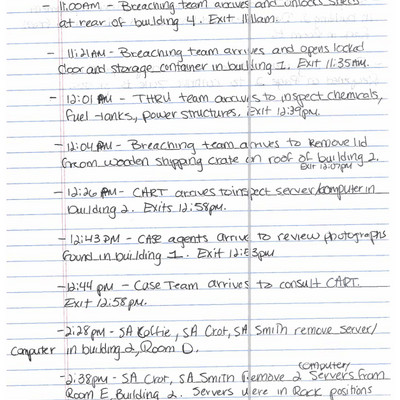 - 11:00AM - Breaching team arrives and unlocks
at rear of building 4. Exit 11:11am.
- 11:21AM - Breaching team arrives and opens locked
door and storage container in building 1. Exit 11:35AM.
- 12:01 PM - THRU team arrives to inspect chemicals,
fuel tanks, power structures. Exit 12:39pm.
- 12:04PM - Breaching team arrives to remove lid
from wooden shipping crate on roof of building 2.
Exit 12:07PM
- 12:26 PM - CART arrives to inspect server/computer in
building 2. Exits 12:58pm.
- 12:43 PM - CASE agents arrive to review photographs
found in building 1. Exit 12:53pm
- 12:44 pm - Case Team arrives to consult CART.
Exit 12:58pm.
- 2:28pm - SA , SA Crot, SA Smith remove server/
computer in building 2, Room D.
computer/
- 2:38pm - SA Crot, SA Smith Remove 2 Servers from
Room E, Building 2. Servers were in Rack positions